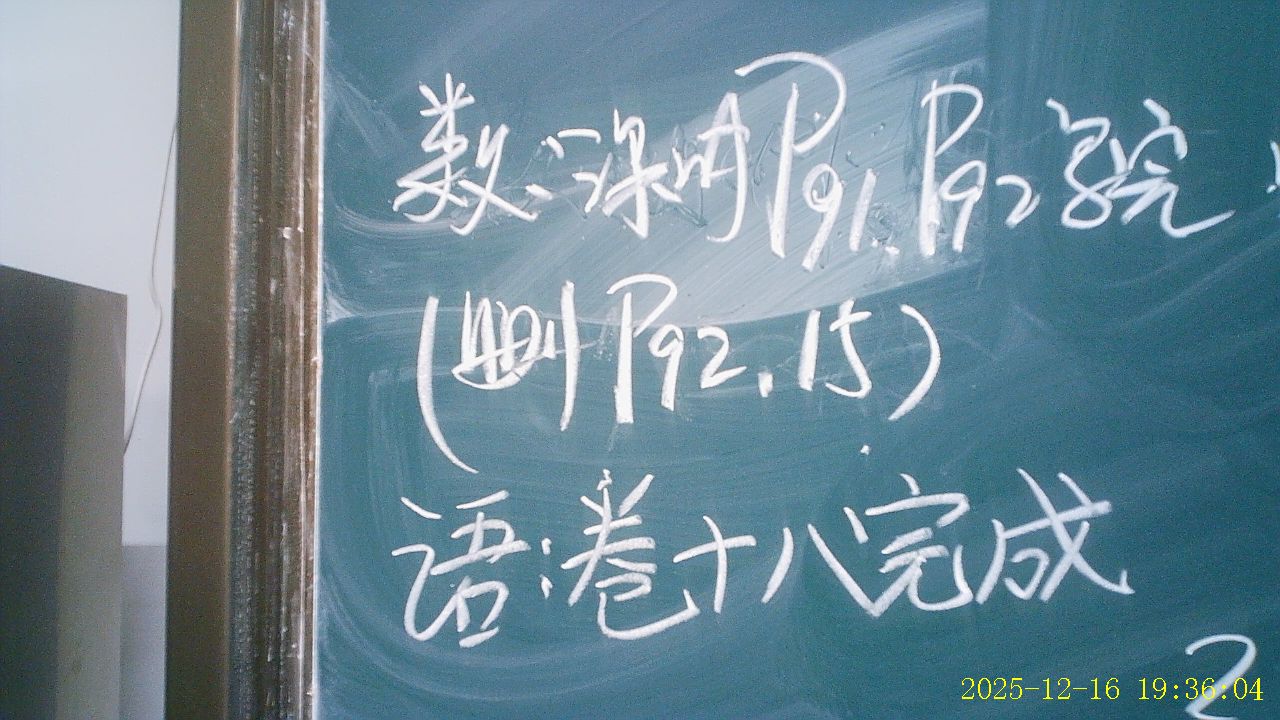 数:课时 P91、P92 写完
(删 P92.15)
语:卷十八完成
2
2025-12-16 19:36:04